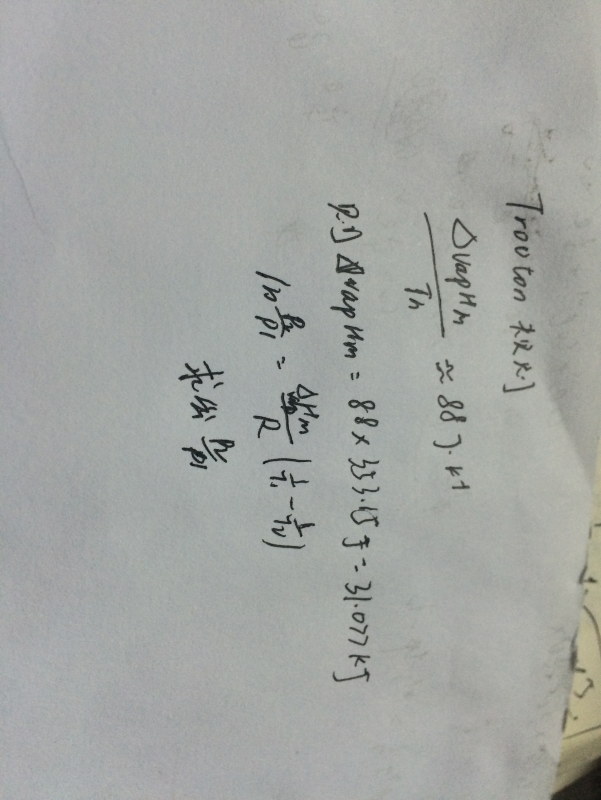 Trouton 规则
ΔvapHm / Tn ≈ 88 J·K⁻¹
则 ΔvapHm = 88 × 353.15 J = 31.077 KJ
ln P2/P1 = ΔHm/R (1/T1 - 1/T2)
求出 P2/P1